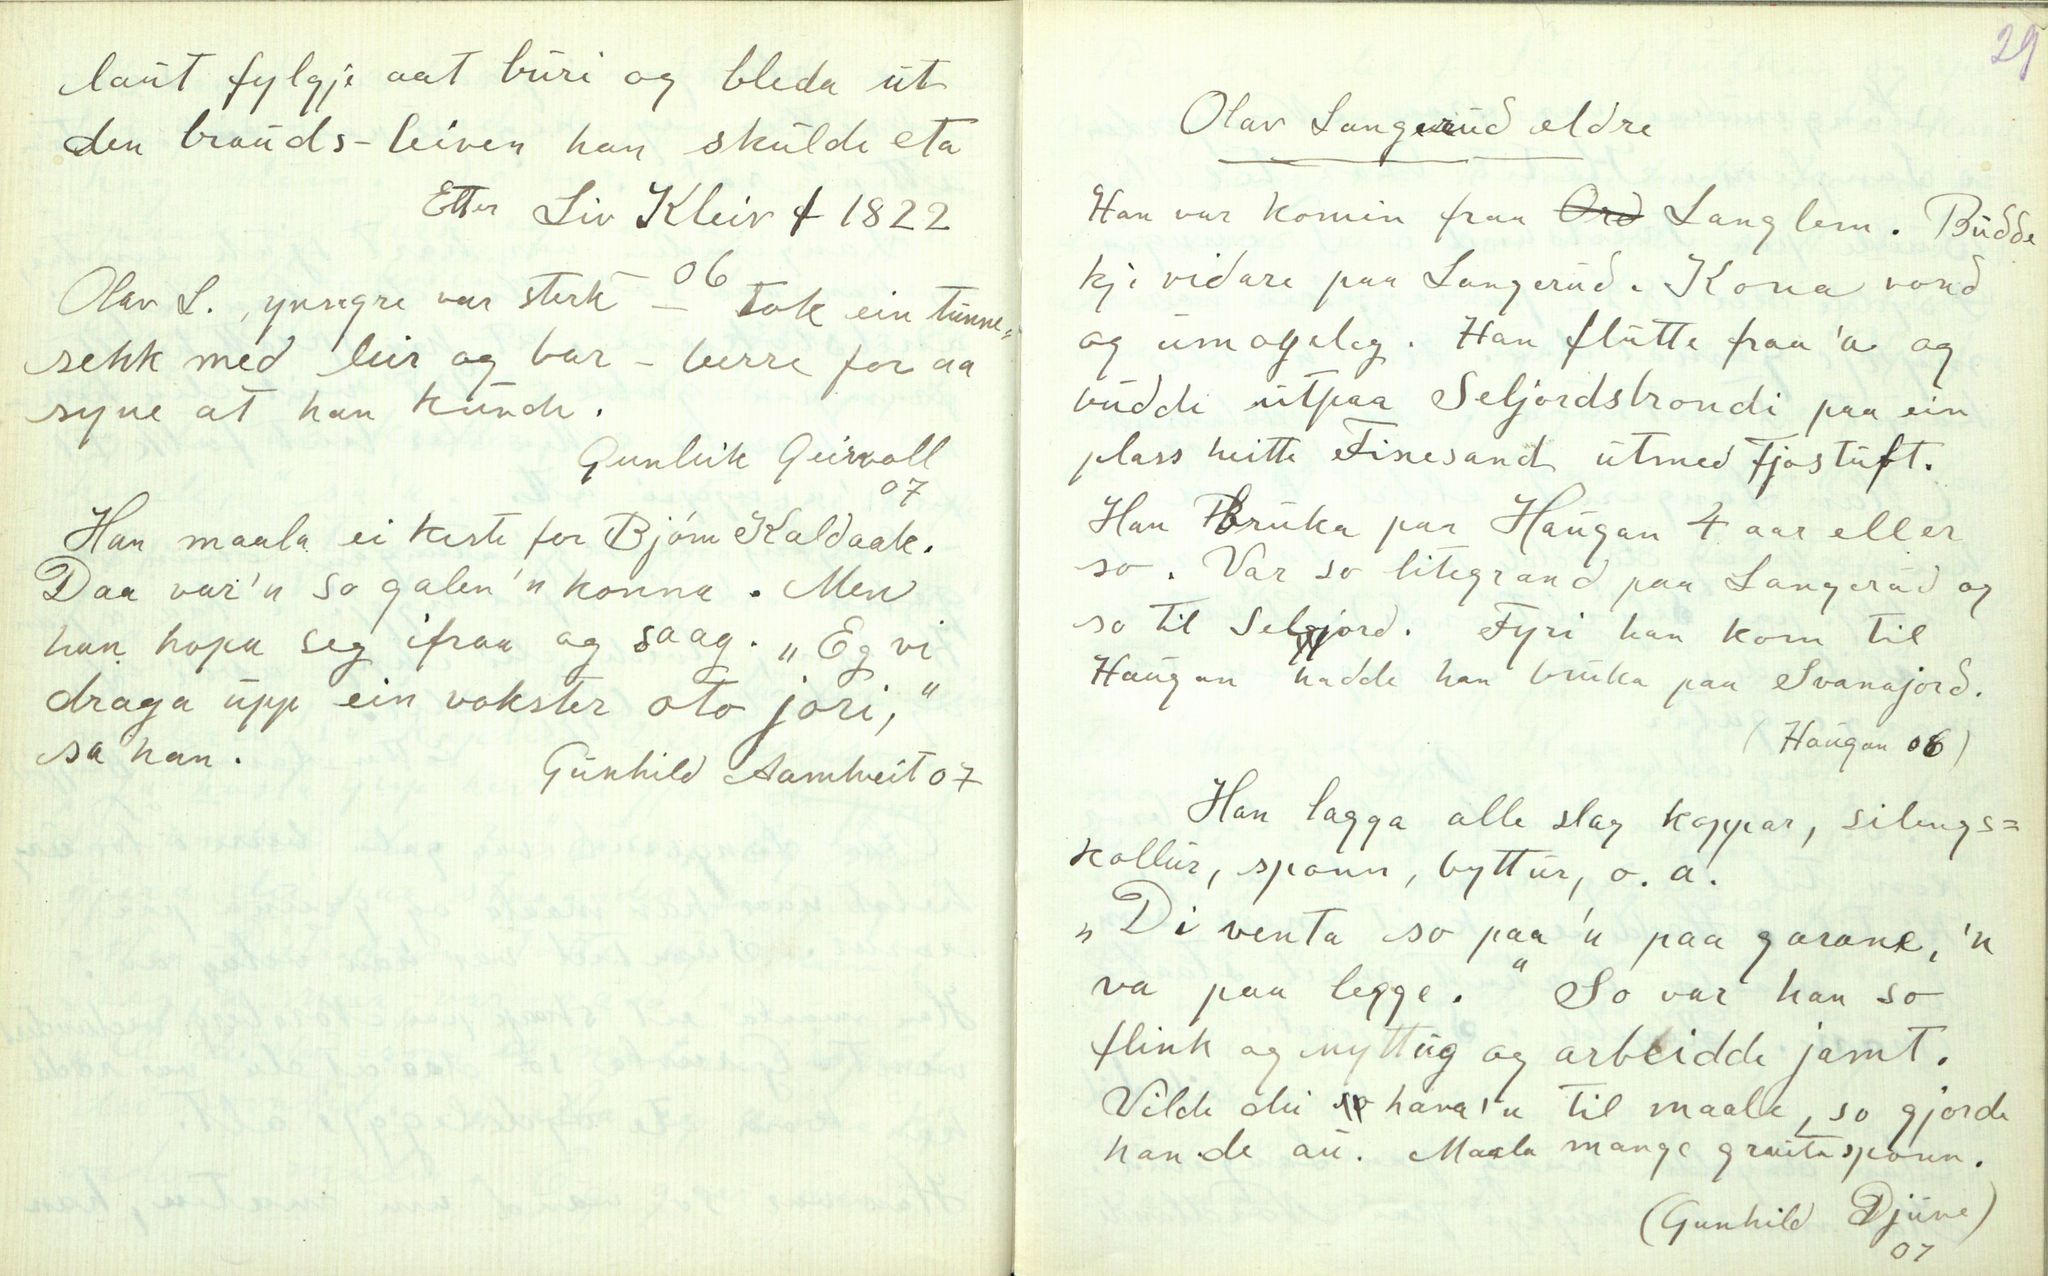 laut fylgje aat buri og bleda ut
den brauds-leiven han skulde eta
Etter Liv Kleiv f 1822
Olav L., yngre var sterk - 06 Tok ein tunne=
sekk med leir og bar - berre for aa
syne at han kunde.
Gunleik Geirvoll
07
Han maala ei kiste for Bjórn Kaldaak.
Daa var'n so galen'n konna. Men
han hopa seg ifraa og saag. „Eg vi
draga upp ein vokster oto jori,"
sa han.
Gunhild Aamtveit 07
29
Olav Langerud eldre
Han var komin fraa Ord Langlem. Budde
kje vidare paa Langerud. Kona vond
og umogeleg. Han flutte fraa 'a og
budde utpaa Seljordstrondi paa ein
plass heitte Finesand utmed Fjostuft.
Han bruka paa Haugan 4 aar eller
so. Var so litegrand paa Langerud og
so til Seljord. Fyri han kom til
Haugan hadde han bruka paa Svanajord.
(Haugan 06)
Han lagga alle slag koppar, silengs=
kollur, sponn, byttur, o. a.
„Di venta so paa'n paa garane, 'n
va paa legge." So var han so
flink og nyttug og arbeidde jamt.
Vilde dei hava'n til maale, so gjorde
han de au. Maala mange grautasponn.
(Gunhild Djuve)
07